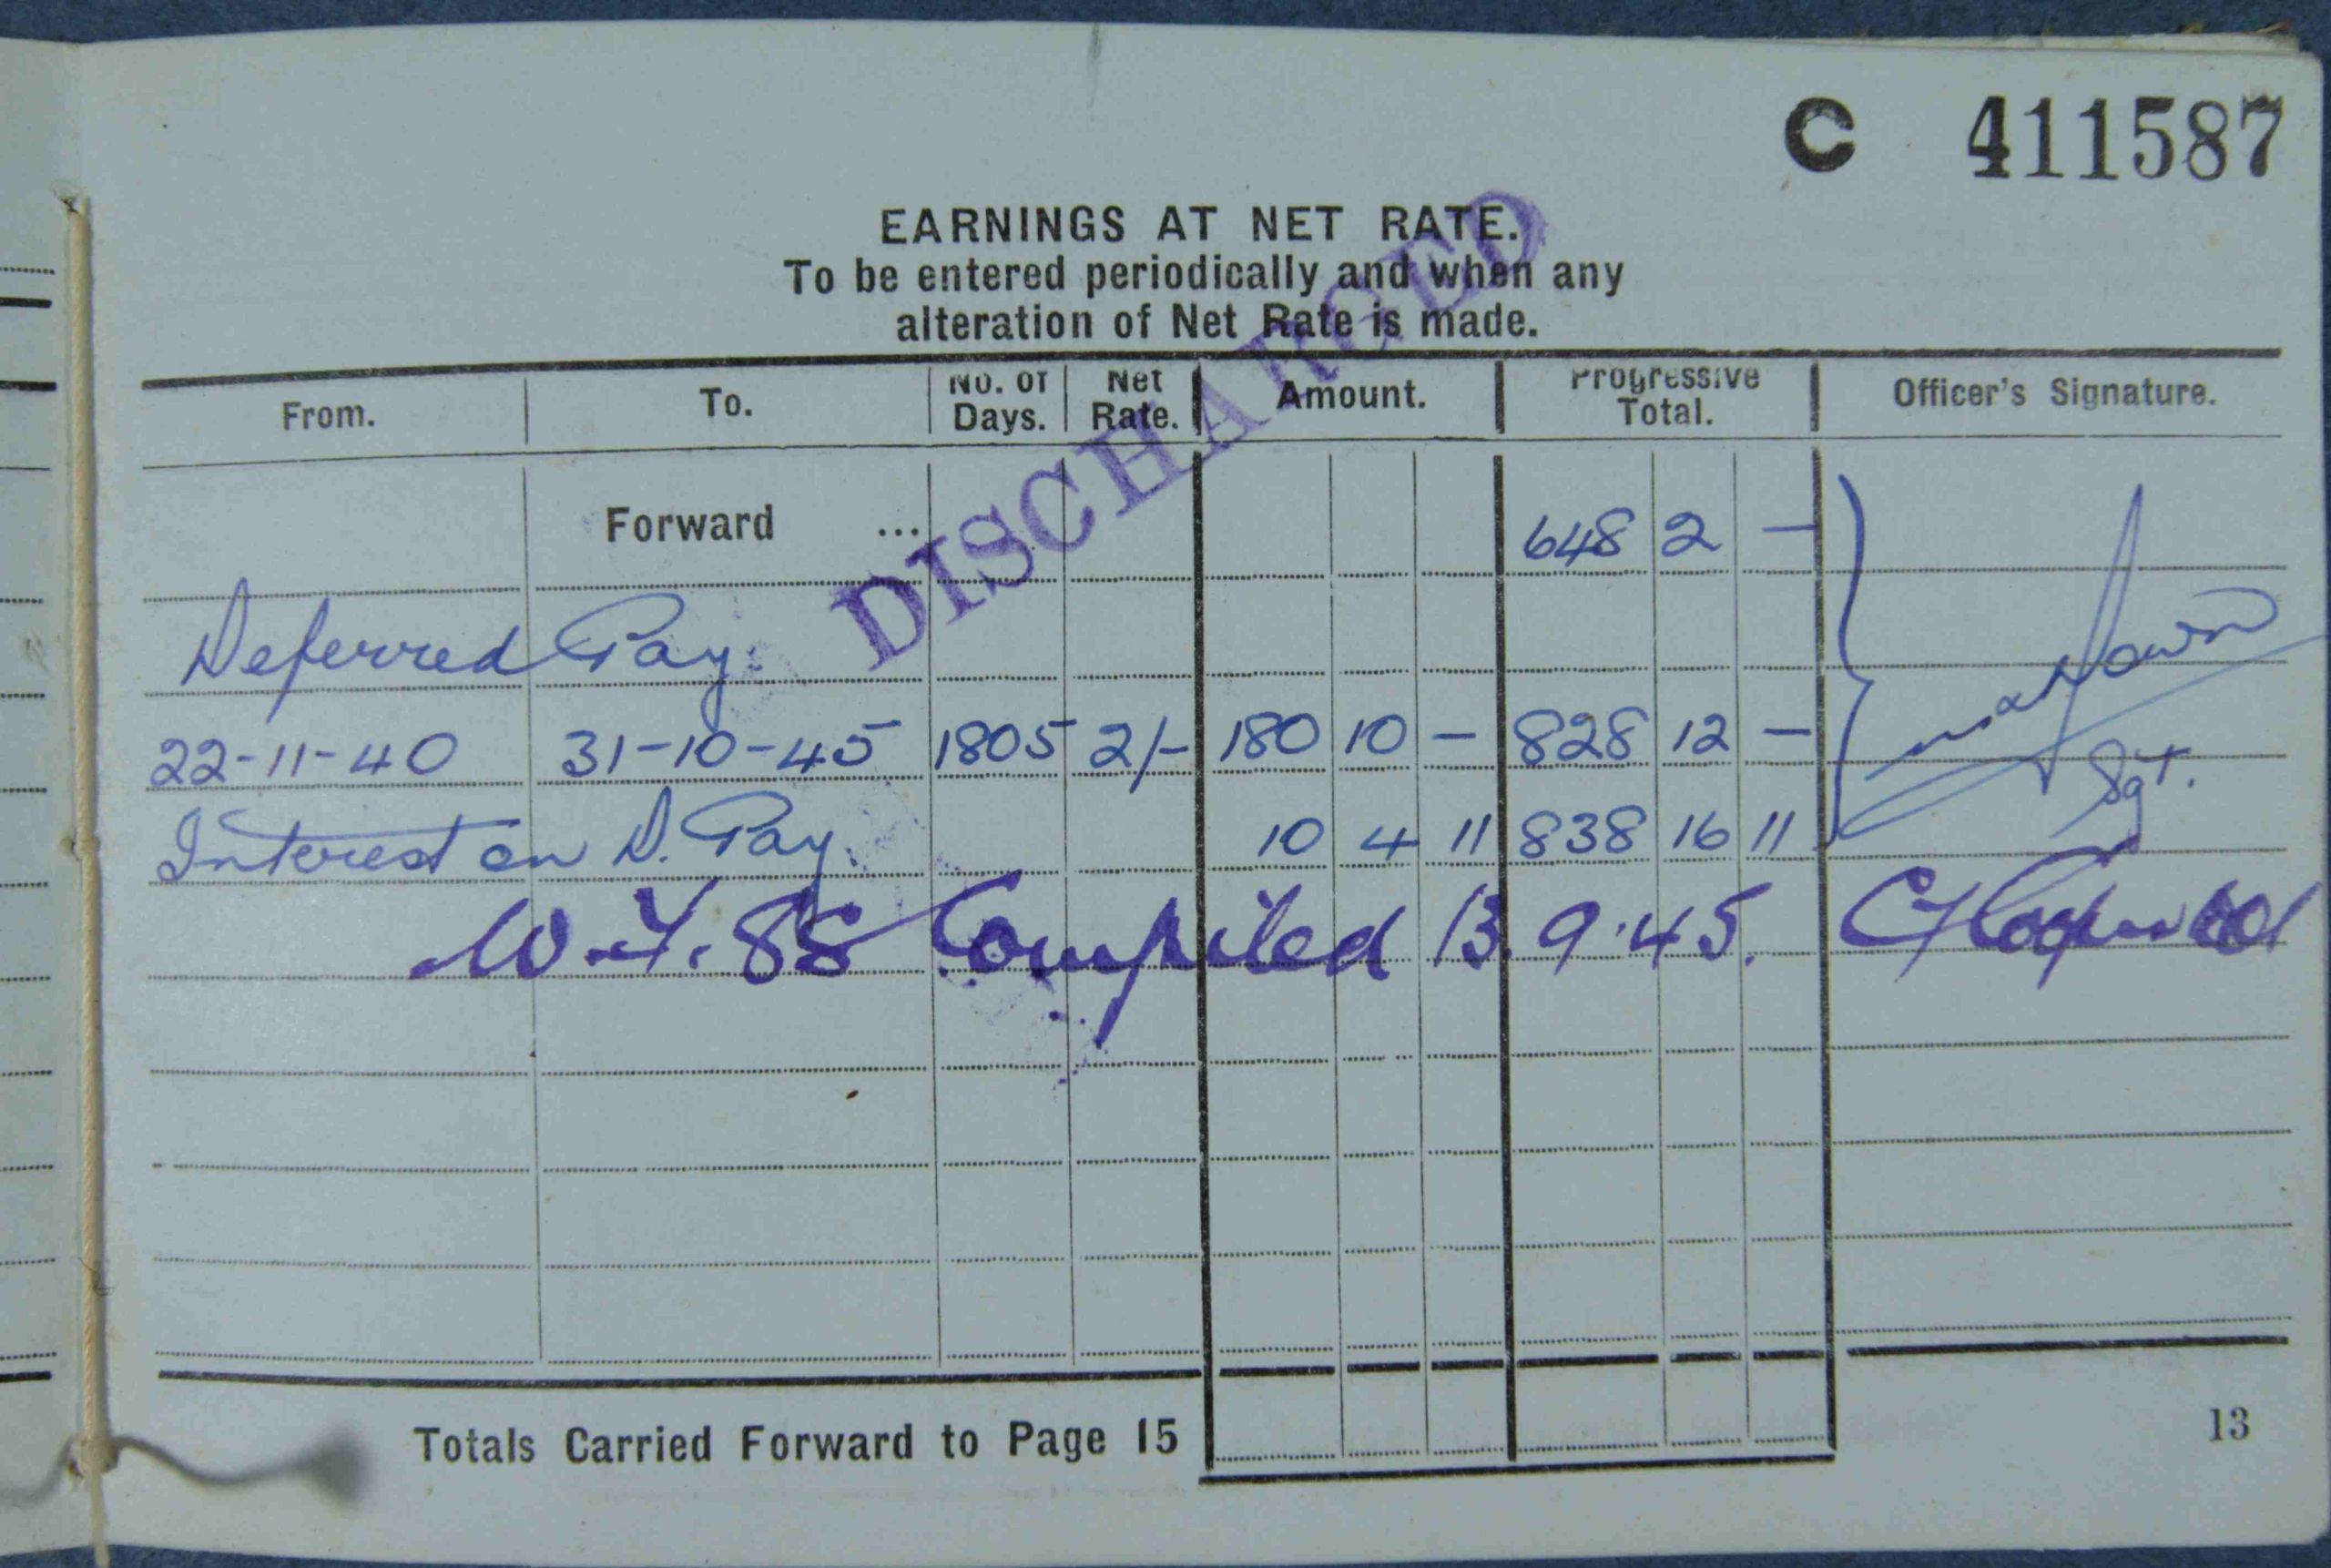 C 411587
EARNINGS AT NET RATE.
To be entered periodically and when any
alteration of Net Rate is made.
DISCHARGED
From. To. No. of Days. Net Rate. Amount. Progressive Total. Officer's Signature.
Forward ... 648 2 —
Deferred Pay.
22-11-40 31-10-45 1805 2/- 180 10 — 828 12 —
Sgt.
Interest on D. Pay. 10 4 11 838 16 11
Compiled 13.9.45.
Totals Carried Forward to Page 15
13